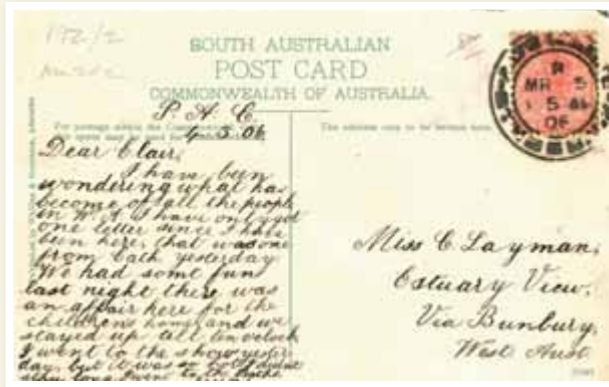 172/2
SOUTH AUSTRALIAN
POST CARD
COMMONWEALTH OF AUSTRALIA.
P. A. C.
4.3.06
For postage within the
The address only to be written here
Dear Clair,
I have been
wondering what has
become of all the people
in W. A. I have only got
one letter since I have
been here, that was one
from Cath yesterday
We had some fun
last night there was
an affair here for the
childrens home and we
stayed up till ten oclock
I went to the show yester
day, but it was so
MR 5
06
Miss C. Layman,
Estuary View,
Via Bunbury,
West Aust